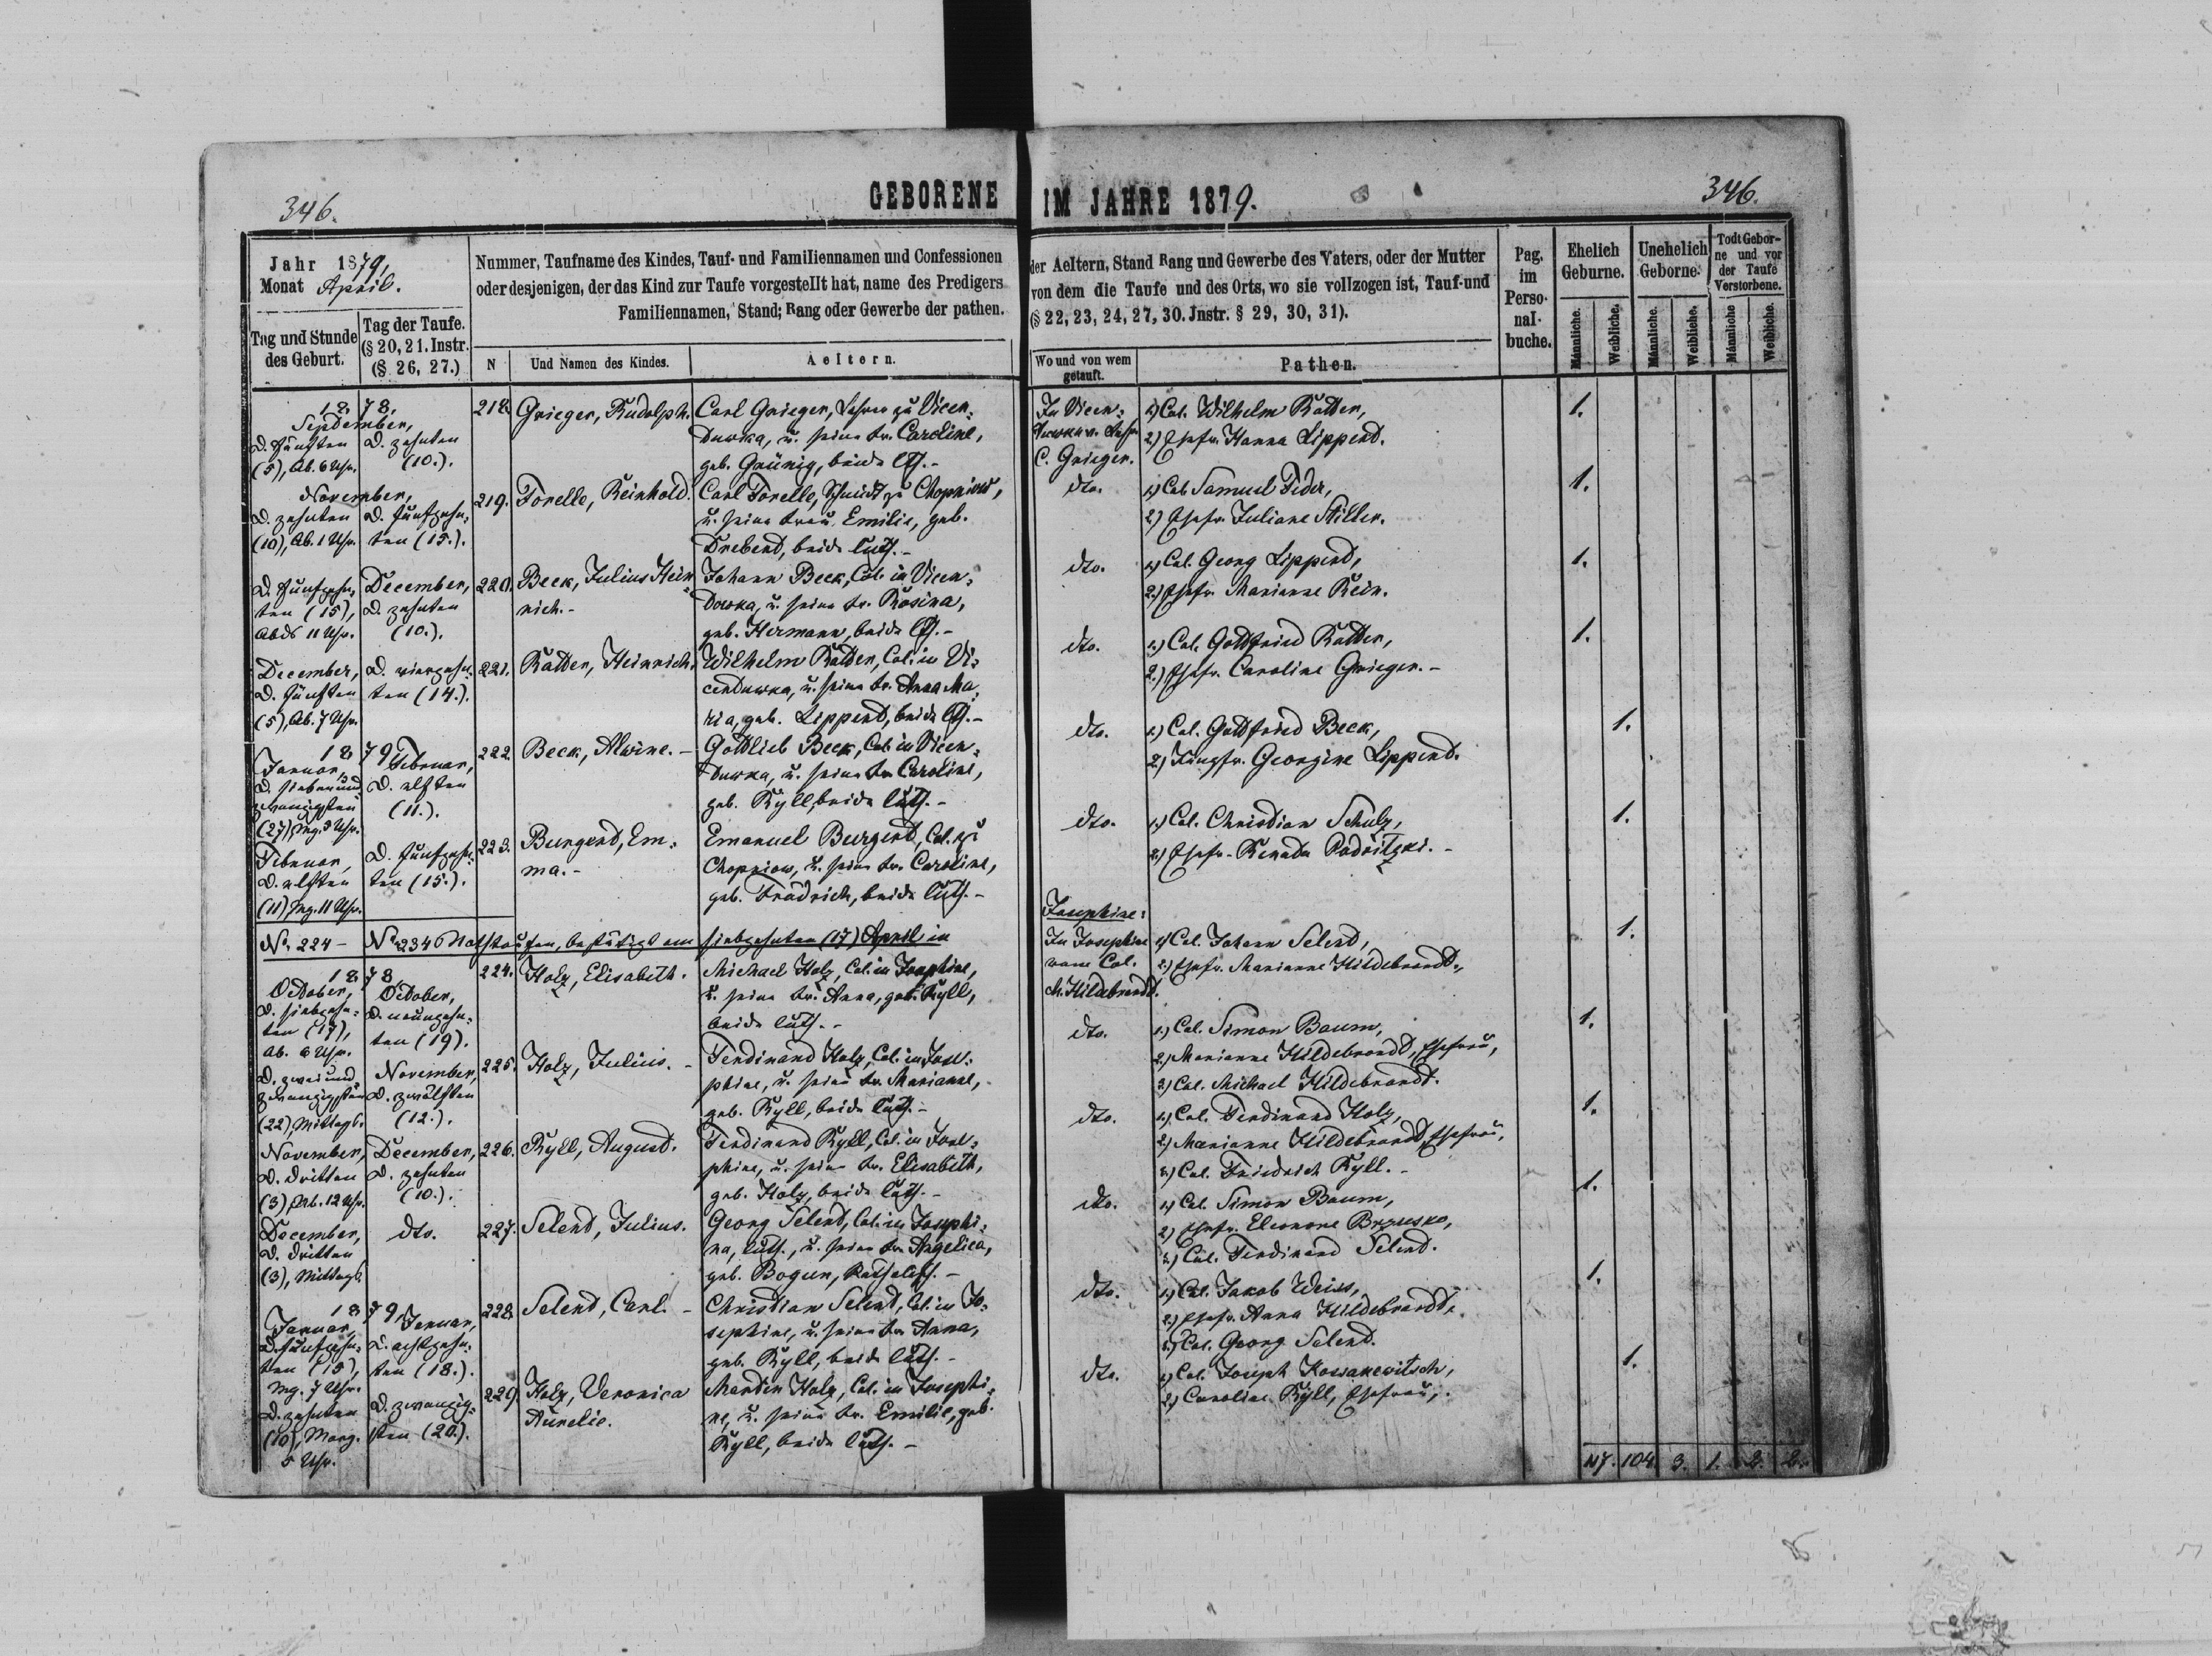 346.
GEBORENE IM JAHRE 1879.
346.
Jahr 1879,
Monat April.
Tag und Stunde
des Geburt.
Tag der Taufe.
(§ 20, 21. Instr.
(§. 26, 27.)
Nummer, Taufname des Kindes, Tauf- und Familiennamen und Confessionen
oder desjenigen, der das Kind zur Taufe vorgestellt hat, name des Predigers
Familiennamen, Stand; Rang oder Gewerbe der pathen.
N
Und Namen des Kindes.
Aeltern.
der Aeltern, Stand Rang und Gewerbe des Vaters, oder der Mutter
von dem die Taufe und des Orts, wo sie vollzogen ist, Tauf-und
(§ 22, 23, 24, 27, 30. Jnstr. § 29, 30, 31).
Wo und von wem
getauft.
Pathen.
Pag.
im
Perso-
nal-
buche.
Ehelich
Geburne.
Unehelich
Geborne.
Todt Gebor-
ne und vor
der Taufe
Verstorbene.
Männliche.
Weibliche.
Männliche.
Weibliche.
Männliche
Weibliche.
1878,
September,
D. fünften
(5), Ab. 6 Uhr.
D. zehnten
(10.).
218.
Grieger, Rudolph.
Carl Grieger, Lehrer zu Vicen-
duwka, u. seine Fr. Caroline,
geb. Grünig, beide lth.-
In Vicen-
C. Grieger.
1.) Col. Wilhelm Ratter,
2.) Ehefr. Hanna Lippert.
1.
November,
D. zehnten
(10), Ab. 1 Uhr.
D. fünfzehn-
ten (15.).
219.
Torelle, Reinhold.
Carl Torelle, Schmidt zu Chopniow,
u. seine Frau Emilie, geb.
Drebert, beide luth.-
dto.
1.) Col. Samuel Fider,
2.) Ehefr. Juliane Stiller.
1.
D. fünfzehn-
ten (15),
Abds 11 Uhr.
December,
D. zehnten
(10.).
220.
Beck, Julius Hein-
rich.-
Johann Beck, Col. in Vicen-
dowka, u. seine Fr. Rosina,
geb. Hermann, beide lth.-
dto.
1.) Col. Georg Lippert,
2.) Ehefr. Marianne Rein.
1.
December,
D. fünften
(5), Ab. 7 Uhr.
D. vierzehn-
ten (14.).
221.
Ratter, Heinrich.
Wilhelm Ratter, Col. in Vi-
cenduwka, u. seine Fr. Anna Ma-
ria, geb. Lippert, beide lth.-
dto.
1.) Col. Gottfried Ratter,
2.) Ehefr. Caroline Grieger.-
1.
1879
Januar,
D. siebenund
zwanzigsten
(27), Mg. 3 Uhr.
Februar,
D. elften
(11.).
222.
Beck, Alwine.-
Gottlieb Beck, Col. in Vicen-
duwka, u. seine Fr. Caroline,
geb. Ryll, beide luth.-
dto.
1.) Col. Gottfried Beck,
2.) Jungfr. Georgine Lippert.
1.
Februar,
D. elften
(11) Mg. 11 Uhr.
D. fünfzehn-
ten (15.).
223.
Burgert, Em-
ma.-
Emanuel Burgert, Col. zu
Chopniow, u. seine Fr. Caroline,
geb. Fradrich, beide luth.-
dto.
1.) Col. Christian Schulz,
2.) Ehefr. Renate Padritzki.-
1.
No. 224 - No. 234 Nothtaufen, bestätigt am siebzehnten (17) April in
Josephine:
1878
October,
D. siebzehn-
ten (17),
Ab. 6 Uhr.
October,
D. neunzehn-
ten (19).
224.
Holz, Elisabeth.
Michael Holz, Col. in Josephine,
u. seine Fr. Anna, geb. Ryll,
beide luth.-
In Josephine
vom Col.
M. Hildebrandt.
1.) Col. Johann Selent,
2.) Ehefr. Marianne Hildebrandt.
1.
D. zweiund-
zwanzigsten
(22), Mittags.
November,
D. zwölften
(12.).
225.
Holz, Julius.-
Ferdinand Holz, Col. in Jose-
phine, u. seine Fr. Marianne,
geb. Ryll, beide luth.-
dto.
1.) Col. Simon Baum,
2.) Marianne Hildebrandt, Ehefrau,
3.) Col. Michael Hildebrandt.
1.
November,
D. dritten
(3) Ab. 12 Uhr.
December,
D. zehnten
(10.).
226.
Ryll, August.
Ferdinand Ryll, Col. in Jose-
phine, u. seine Fr. Elisabeth,
geb. Holz, beide luth.-
dto.
1.) Col. Ferdinand Holz,
2.) Marianne Hildebrandt, Ehefrau,
3.) Col. Friedrich Ryll.-
1.
December,
D. dritten
(3), Mittags.
dto.
227.
Selent, Julius.
Georg Selent, Col. in Josephi-
na, luth., u. seine Fr. Angelica,
geb. Bogun, kathol.-
dto.
1.) Col. Simon Baum,
2.) Ehefr. Eleonore Brzusko,
3.) Col. Ferdinand Selent.
1.
1879
Januar,
D. fünfzehn-
ten (15),
Mg. 7 Uhr.
Januar,
D. achtzehn-
ten (18.).
228.
Selent, Carl.-
Christian Selent, Col. in Jo-
sephine, u. seine Fr. Anna,
geb. Ryll, beide luth.-
dto.
1.) Col. Jakob Weiss,
2.) Ehefr. Anna Hildebrandt,
3.) Col. Georg Selent.
1.
D. zehnten
(10), Morg.
5 Uhr.
D. zwanzig-
sten (20.).
229.
Holz, Veronica
Aurelie.
Martin Holz, Col. in Josephi-
ne, u. seine Fr. Emilie, geb.
Ryll, beide luth.-
dto.
1.) Col. Joseph Kossakewitsch,
2.) Caroline Ryll, Ehefrau.
1.
117. 104. 3. 1. 2. 2.